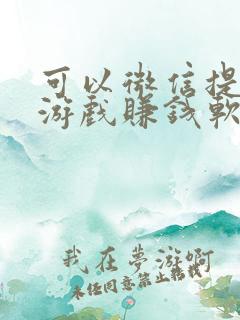 可以微信提
游戏赚钱软
我在夢游啊
未经同意禁止转载